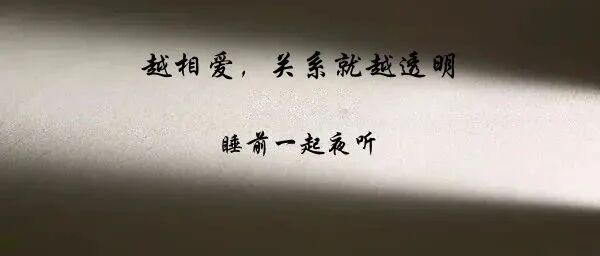 越相爱，关系就越透明
睡前一起夜听